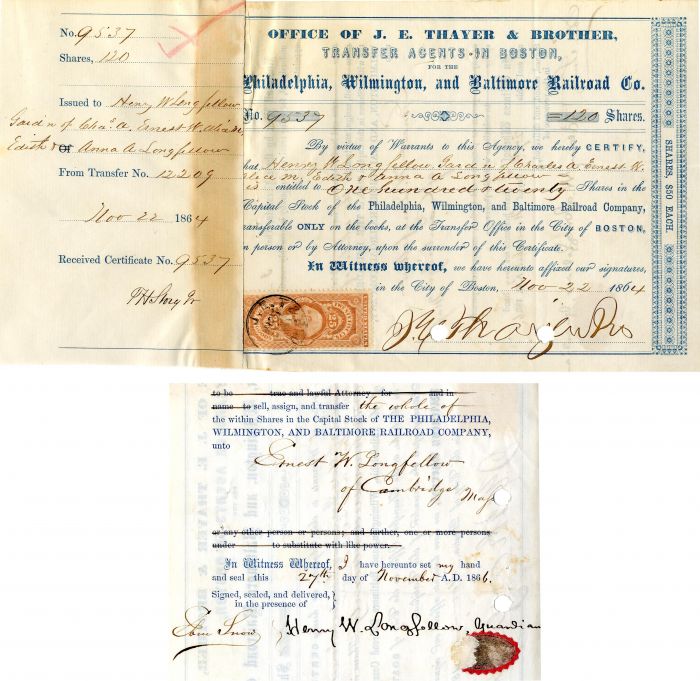 No. 9537
Shares, 120
Issued to Henry W Longfellow
Gardn of Chas A. Ernest W. Alice M.
Edith & Anna A Longfellow
From Transfer No. 12209
Nov 22 1864
Received Certificate No. 9537
OFFICE OF J. E. THAYER & BROTHER,
TRANSFER AGENTS-IN BOSTON,
FOR THE
Philadelphia, Wilmington, and Baltimore Railroad Co.
No. 9537 =120 Shares.
By virtue of Warrants to this Agency, we hereby CERTIFY,
that Henry W Longfellow Gardn of Charles A. Ernest W.
Alice M, Edith & Anna A Longfellow
is entitled to One hundred & twenty Shares in the
Capital Stock of the Philadelphia, Wilmington, and Baltimore Railroad Company,
transferable ONLY on the books, at the Transfer Office in the City of BOSTON,
in person or by Attorney, upon the surrender of this Certificate.
In Witness whereof, we have hereunto affixed our signatures,
in the City of Boston, Nov 22 1864
SHARES, $50 EACH.
25
to be true and lawful Attorney for and in
name to sell, assign, and transfer the whole of
the within Shares in the Capital Stock of THE PHILADELPHIA,
WILMINGTON, AND BALTIMORE RAILROAD COMPANY,
unto
Ernest W. Longfellow
of Cambridge Mass
or any other person or persons; and further, one or more persons
under to substitute with like power.
In Witness Whereof, I have hereunto set my hand
and seal this 27th day of November A.D. 1866.
Signed, sealed, and delivered,
in the presence of
Eben Snow Henry W. Longfellow, Guardian